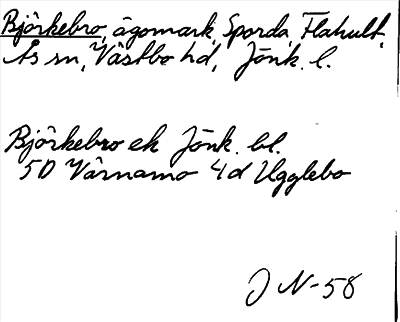 Björkebro, ägomark, Sporda, Flahult,
Ås sn, Västbo hd, Jönk. l.
Björkebro ek Jönk. bl.
5D Värnamo 4d Ugglebo
J N-58